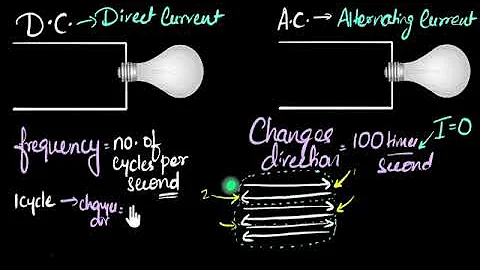 D.C. → Direct Current
A.C. → Alternating Current
frequency = no. of
cycles per
second
1 cycle →
dir =
Changes
direction = 100 times
second
I = 0
1
2